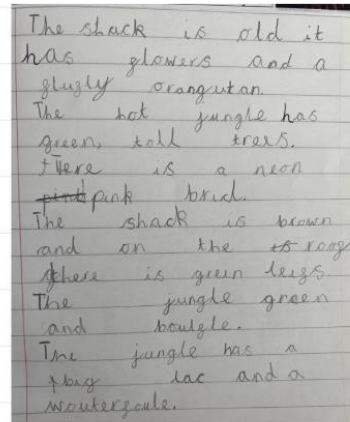 The shack is old it
has flowers and a
flufly orangutan.
The hot jungle has
green, tall trees.
there is a neon
pink brid.
The shack is brown
and on the roof
there is green leigs.
The jungle green
and
The jungle has a
big lac and a